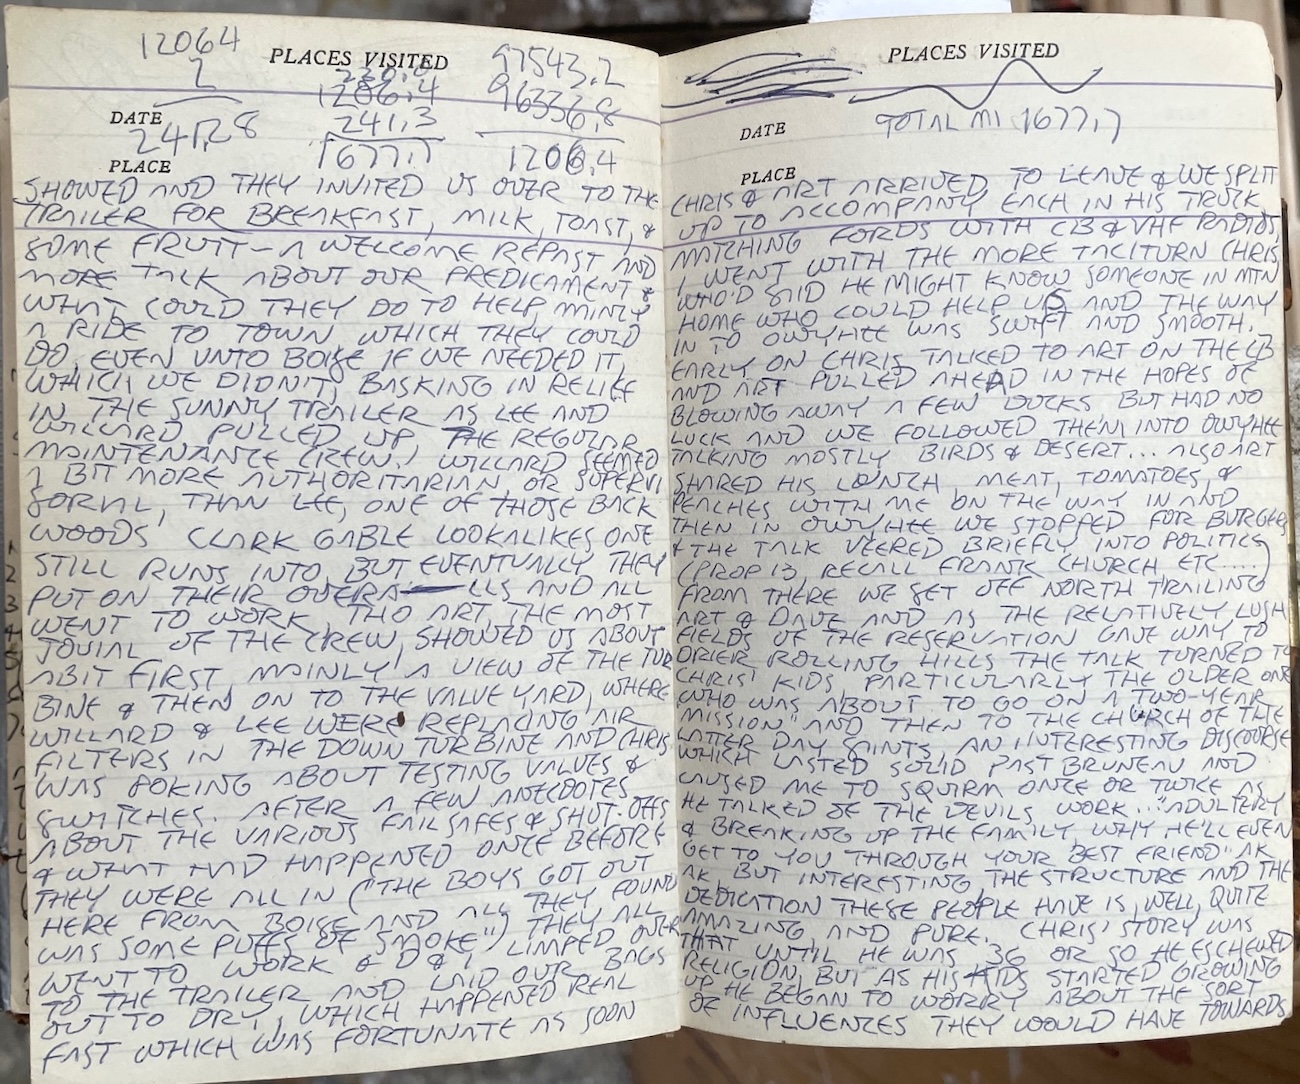 12064
2
241,28
PLACES VISITED
220,0
1286,4
241,3
1677,7
97543,2
96336,8
1206,4
DATE
PLACE
SHOWED AND THEY INVITED US OVER TO THE
TRAILER FOR BREAKFAST, MILK, TOAST, &
SOME FRUIT – A WELCOME REPAST AND
MORE TALK ABOUT OUR PREDICAMENT &
WHAT COULD THEY DO TO HELP, MAINLY
A RIDE TO TOWN WHICH THEY COULD
DO, EVEN UNTO BOISE IF WE NEEDED IT,
WHICH WE DIDN'T, BASKING IN RELIEF
IN THE SUNNY TRAILER AS LEE AND
WILLARD PULLED UP THE REGULAR
MAINTENANCE CREW.) WILLARD SEEMED
A BIT MORE AUTHORITARIAN OR SUPERVI
SORIAL, THAN LEE, ONE OF THOSE BACK
WOODS CLARK GABLE LOOKALIKES ONE
STILL RUNS INTO BUT EVENTUALLY THEY
PUT ON THEIR OVERA LLS AND ALL
WENT TO WORK, THO ART, THE MOST
JOVIAL OF THE CREW, SHOWED US ABOUT
A BIT FIRST MAINLY A VIEW OF THE TUR
BINE & THEN ON TO THE VALVE YARD, WHERE
WILLARD & LEE WERE REPLACING AIR
FILTERS IN THE DOWN TURBINE AND CHRIS
WAS POKING ABOUT TESTING VALVES &
SWITCHES. AFTER A FEW ANECDOTES
ABOUT THE VARIOUS FAILSAFES & SHUT-OFFS
& WHAT HAD HAPPENED ONCE BEFORE
THEY WERE ALL IN ("THE BOYS GOT OUT
HERE FROM BOISE AND ALL THEY FOUND
WAS SOME PUFFS OF SMOKE") THEY ALL
WENT TO WORK & D & I LIMPED OVER
TO THE TRAILER AND LAID OUR BAGS
OUT TO DRY, WHICH HAPPENED REAL
FAST WHICH WAS FORTUNATE AS SOON
PLACES VISITED
DATE
TOTAL MI 1677,7
PLACE
CHRIS & ART ARRIVED TO LEAVE & WE SPLIT
UP TO ACCOMPANY EACH IN HIS TRUCK
MATCHING FORDS WITH CB & VHF RADIOS
I WENT WITH THE MORE TACITURN CHRIS
WHO'D SAID HE MIGHT KNOW SOMEONE IN MTN
HOME WHO COULD HELP US AND THE WAY
IN TO OWYHEE WAS SWIFT AND SMOOTH.
EARLY ON CHRIS TALKED TO ART ON THE CB
AND ART PULLED AHEAD IN THE HOPES OF
BLOWING AWAY A FEW DUCKS BUT HAD NO
LUCK AND WE FOLLOWED THEM INTO OWYHEE
TALKING MOSTLY BIRDS & DESERT... ALSO ART
SHARED HIS LUNCH MEAT, TOMATOES, &
PEACHES WITH ME ON THE WAY IN AND
THEN IN OWYHEE WE STOPPED FOR BURGERS
& THE TALK VEERED BRIEFLY INTO POLITICS
(PROP 13, RECALL FRANK CHURCH ETC....)
FROM THERE WE SET OFF NORTH TRAILING
ART & DAVE AND AS THE RELATIVELY LUSH
FIELDS OF THE RESERVATION GAVE WAY TO
DRIER ROLLING HILLS THE TALK TURNED TO
CHRIS' KIDS PARTICULARLY THE OLDER ONE
WHO WAS ABOUT TO GO ON A TWO-YEAR
MISSION" AND THEN TO THE CHURCH OF THE
LATTER DAY SAINTS, AN INTERESTING DISCOURSE
WHICH LASTED SOLID PAST BRUNEAU AND
CAUSED ME TO SQUIRM ONCE OR TWICE AS
HE TALKED OF THE DEVILS WORK..."ADULTERY
& BREAKING UP THE FAMILY, WHY HE'LL EVEN
GET TO YOU THROUGH YOUR BEST FRIEND" AK
AK BUT INTERESTING, THE STRUCTURE AND THE
DEDICATION THESE PEOPLE HAVE IS, WELL, QUITE
AMAZING AND PURE. CHRIS' STORY WAS
THAT UNTIL HE WAS 36 OR SO HE ESCHEWED
RELIGION, BUT AS HIS KIDS STARTED GROWING
UP HE BEGAN TO WORRY ABOUT THE SORT
OF INFLUENCES THEY WOULD HAVE TOWARDS